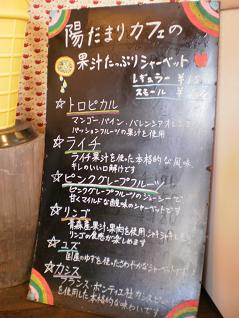 陽だまりカフェの
果汁たっぷりシャーベット
レギュラー ¥
スモール ¥
☆トロピカル
マンゴー、パイン、バレンシアオレンジ
パッションフルーツの果汁を使用
☆ライチ
ライチ果汁を使った本格的な風味
☆ピンクグレープフルーツ
ピンクグレープフルーツのジューシーで
甘くマイルドな酸味のシャーベットです
☆リンゴ
青森産果汁・果肉を使用 シャキシャキした
リンゴの食感が楽しめます
☆ユズ
国産のゆずを使ったさわやかなシャーベットです
☆カシス
フランス、ボンティエ社カシスピューレ
を使用した本格的な味わいです